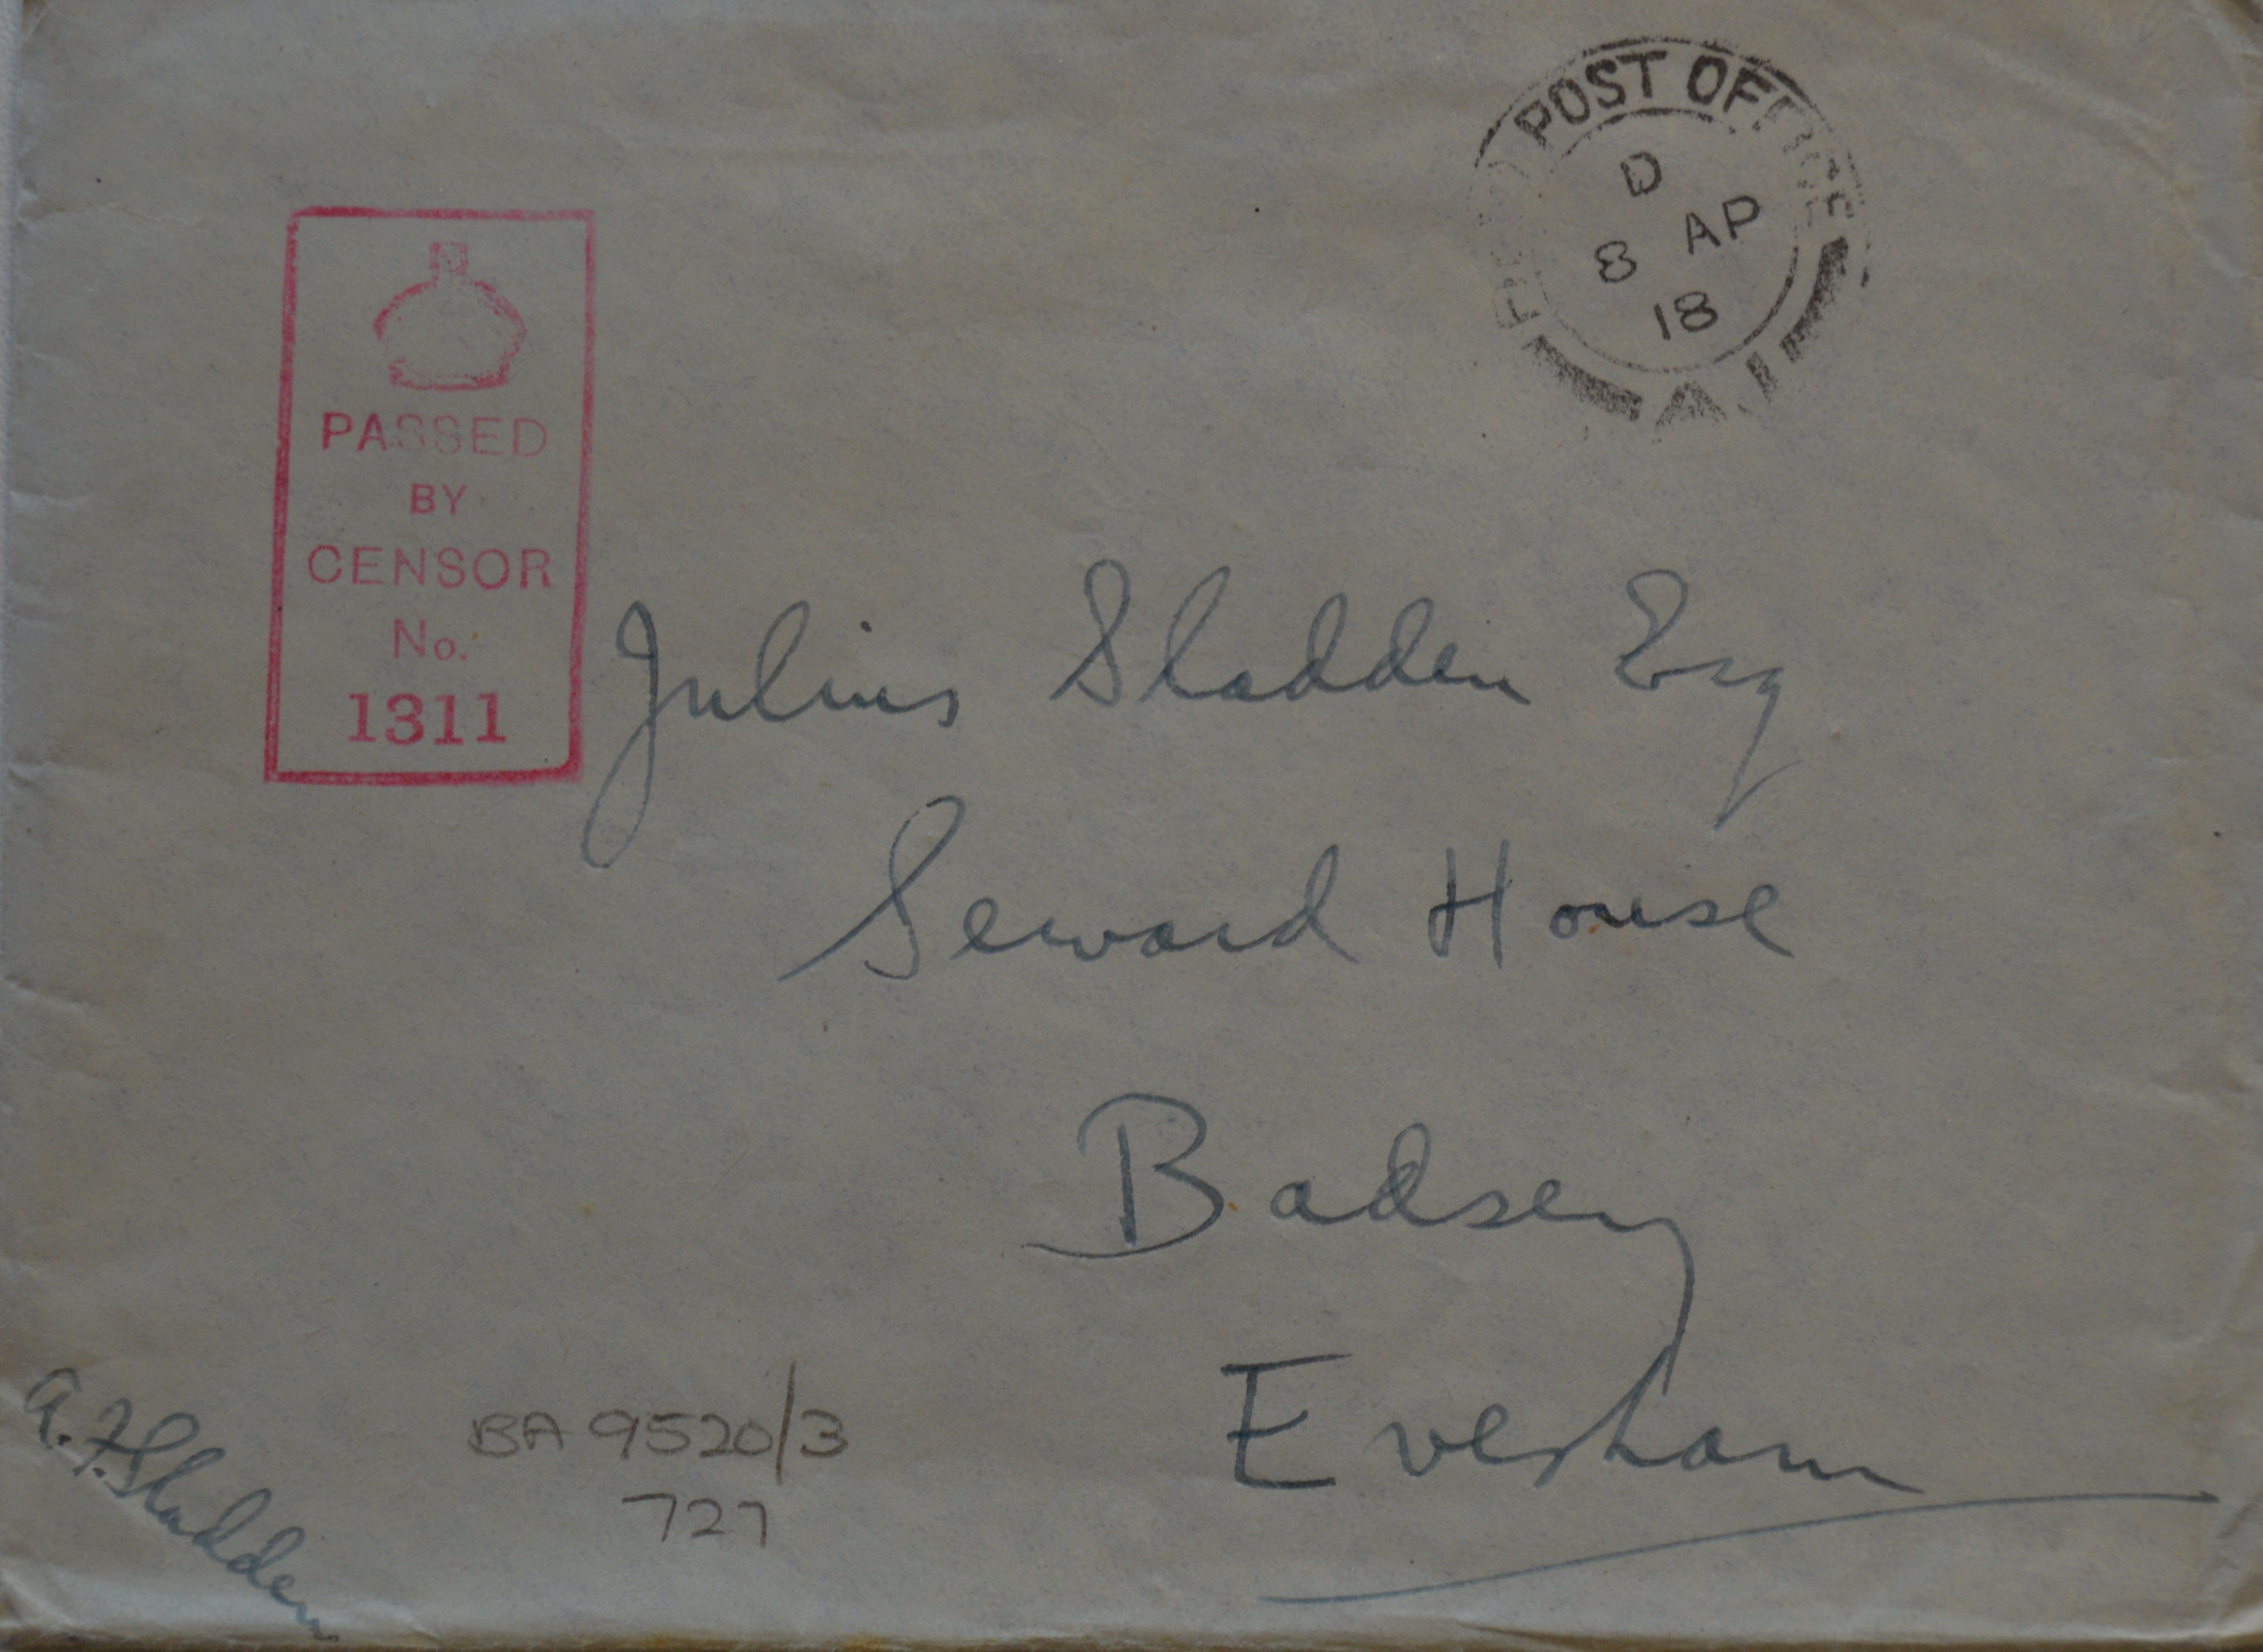 POST OFFICE
D
8 AP
18
PASSED
BY
CENSOR
No.
1311
Julius Sladden Esq
Seward House
Badsey
Evesham
A.F. Sladden
BA 9520/3
727